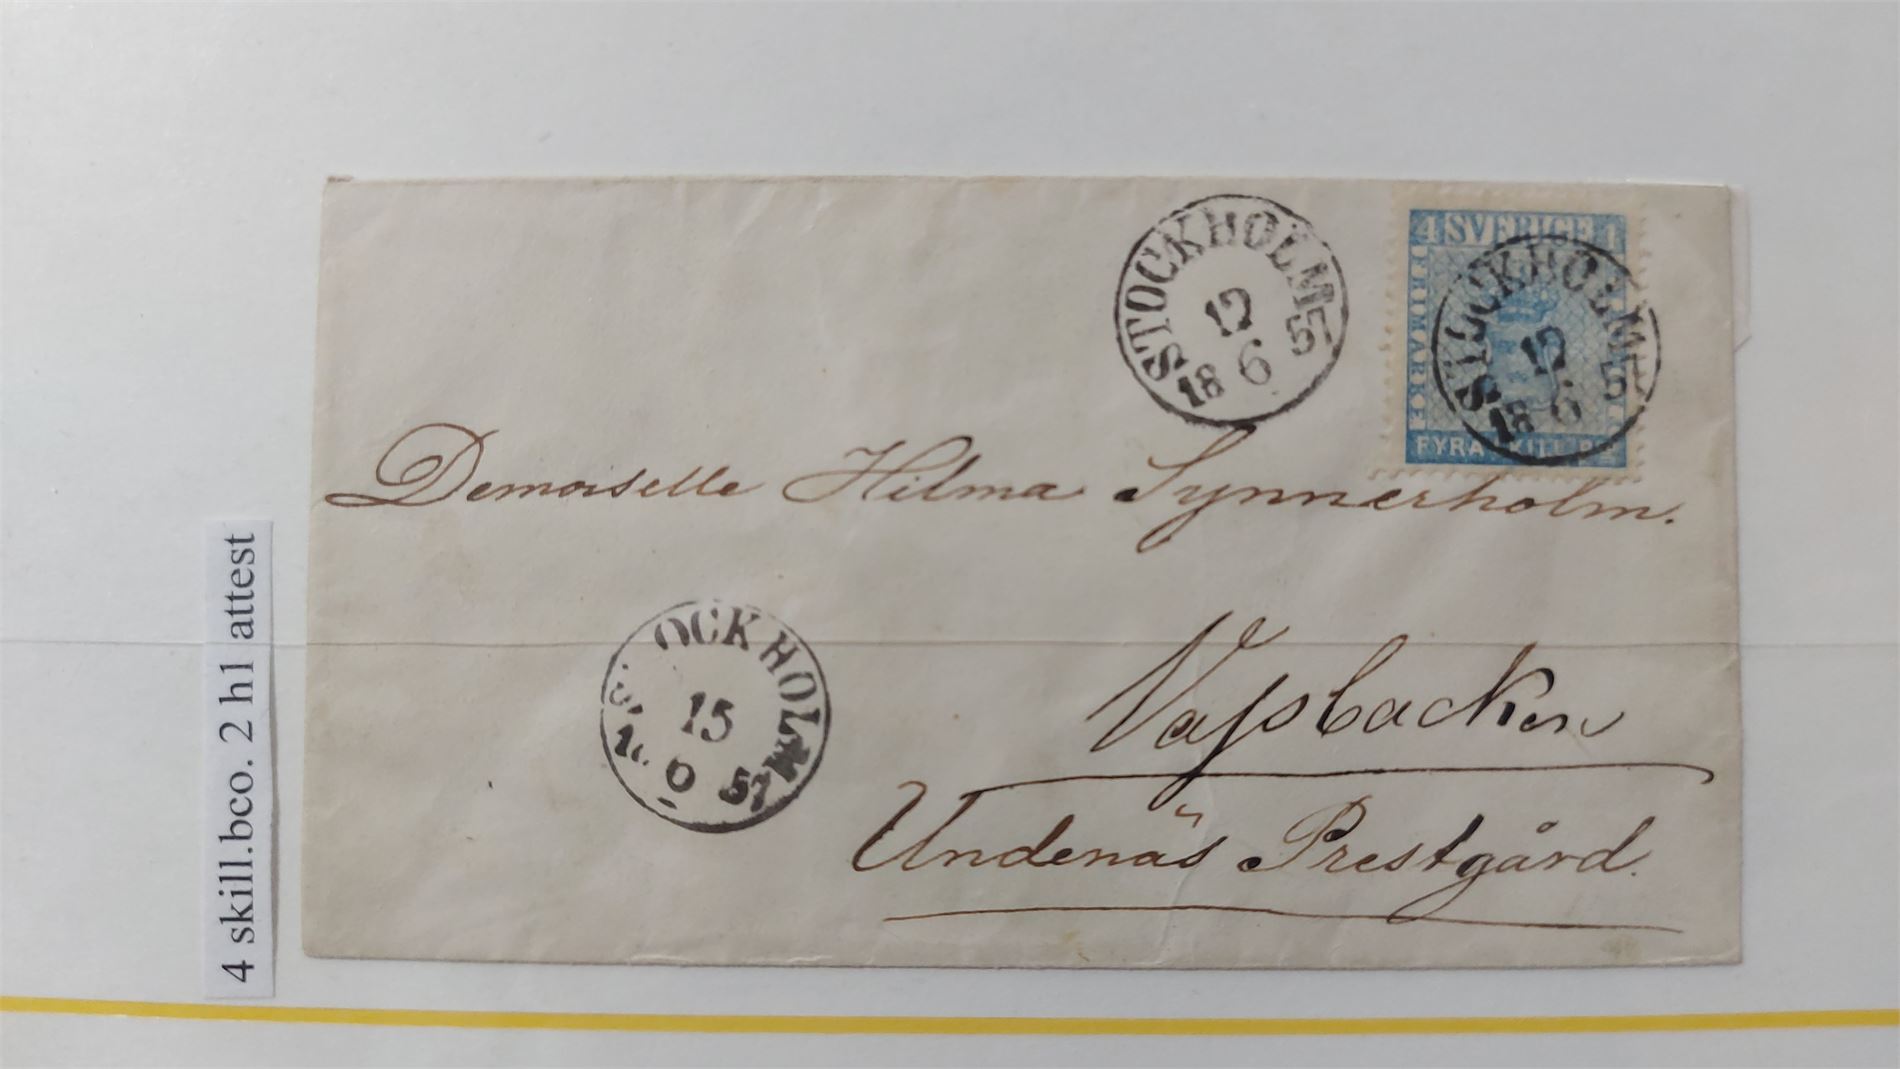 4 skill.bco. 2 h1 attest
STOCKHOLM
12
18 6 57
4 SVERIGE 4
FRIMÄRKE
FYRA SKILL. BCO.
STOCKHOLM
12
18 6 57
Demoiselle Hilma Synnerholm.
STOCKHOLM
15
18 6 57
Undenäs Prestgård.